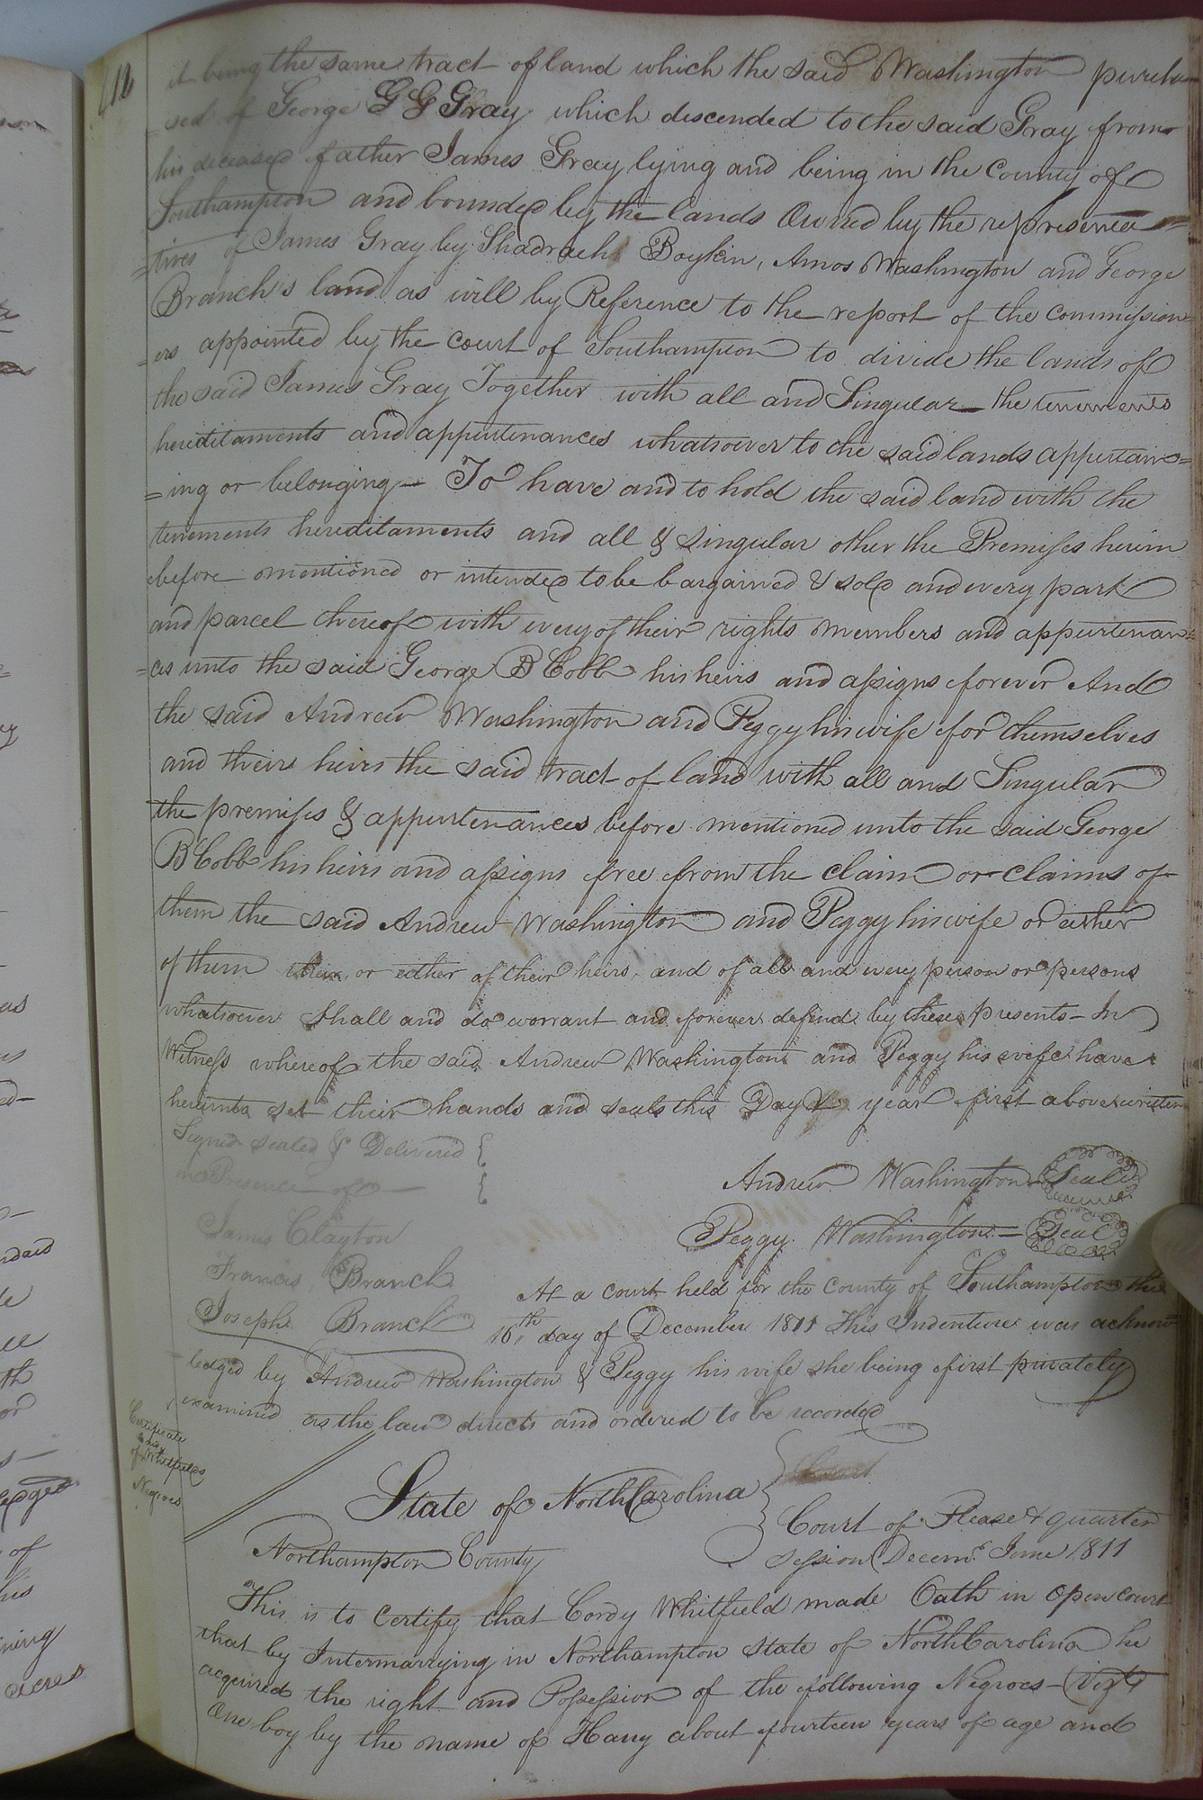 it being the same tract of land which the said Washington purcha
sed of George G G Gray which descended to the said Gray from
his deceased father James Gray lying and being in the County of
Southampton and bounded by the lands Owned by the representa=
=tives of James Gray by Shadrach Boykin, Amos Washington and George
Branch's land as will by Reference to the report of the commission=
=ers appointed by the court of Southampton to divide the lands of
the said James Gray Together with all and Singular the tenements
hereditaments and appurtenances whatsoever to the said lands appertain=
=ing or belonging — To have and to hold the said land with the
tenements hereditaments and all & singular other the Premisses herein
before mentioned or intended to be bargained & sold and every part
and parcel thereof with every of their rights members and appurtenan=
=ces unto the said George B Cobb his heirs and assigns forever And
the said Andrew Washington and Peggy his wife for themselves
and their heirs the said tract of land with all and Singular
the premisses & appurtenances before mentioned unto the said George
B Cobb his heirs and assigns free from the claim or claims of
them the said Andrew Washington and Peggy his wife or either
of them or either of their heirs, and of all and every person or persons
whatsoever shall and do warrant and forever defend by these presents — In
Witness whereof the said Andrew Washington and Peggy his wife have
hereunto set their hands and seals this Day & year first above written
Signed sealed & Delivered
in Presence of —
Andrew Washington Seal
James Clayton
Peggy Washington — Seal
Francis Branch
Joseph Branch
At a court held for the County of Southampton the
16th day of December 1811 This Indenture was acknow=
ledged by Andrew Washington & Peggy his wife she being first privately
examined as the law directs and ordered to be recorded
Certificate
of Whitfields
Negroes
State of North Carolina
Northampton County
Court of Pleas & quarter
session Decemr. Term 1811
This is to certify that Cordy Whitfield made Oath in open court
that by Intermarrying in Northampton State of North Carolina he
acquired the right and Possession of the following Negroes — (Vizt)
One boy by the name of Harry about fourteen years of age and